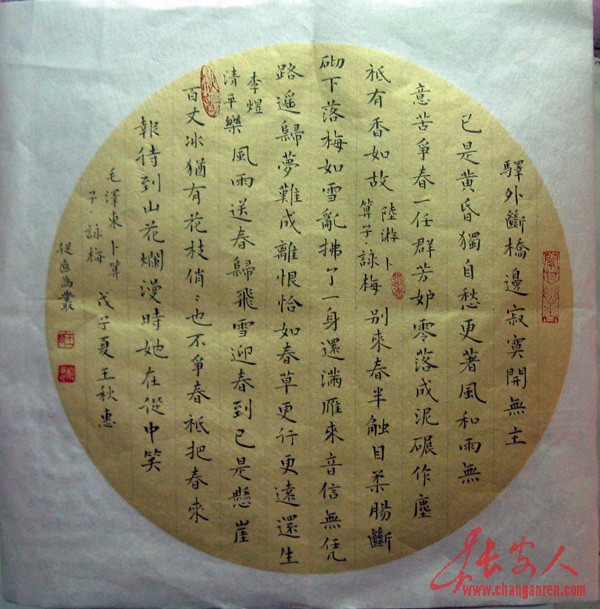 驛外斷橋邊寂寞開無主
已是黃昏獨自愁更著風和雨無
意苦爭春一任群芳妒零落成泥碾作塵
祗有香如故
陸游卜
算子·詠梅
別來春半觸目柔腸斷
砌下落梅如雪亂拂了一身還滿雁來音信無凭
路遥歸夢難成離恨恰如春草更行更遠還生
李煜
清平樂
風雨送春歸飛雪迎春到已是懸崖
百丈冰猶有花枝俏〻也不爭春祗把春來
報待到山花爛漫時她在從中笑
毛澤東卜算
子·詠梅
戊子夏王秋惠
從應為叢
长安人
www.changanren.com